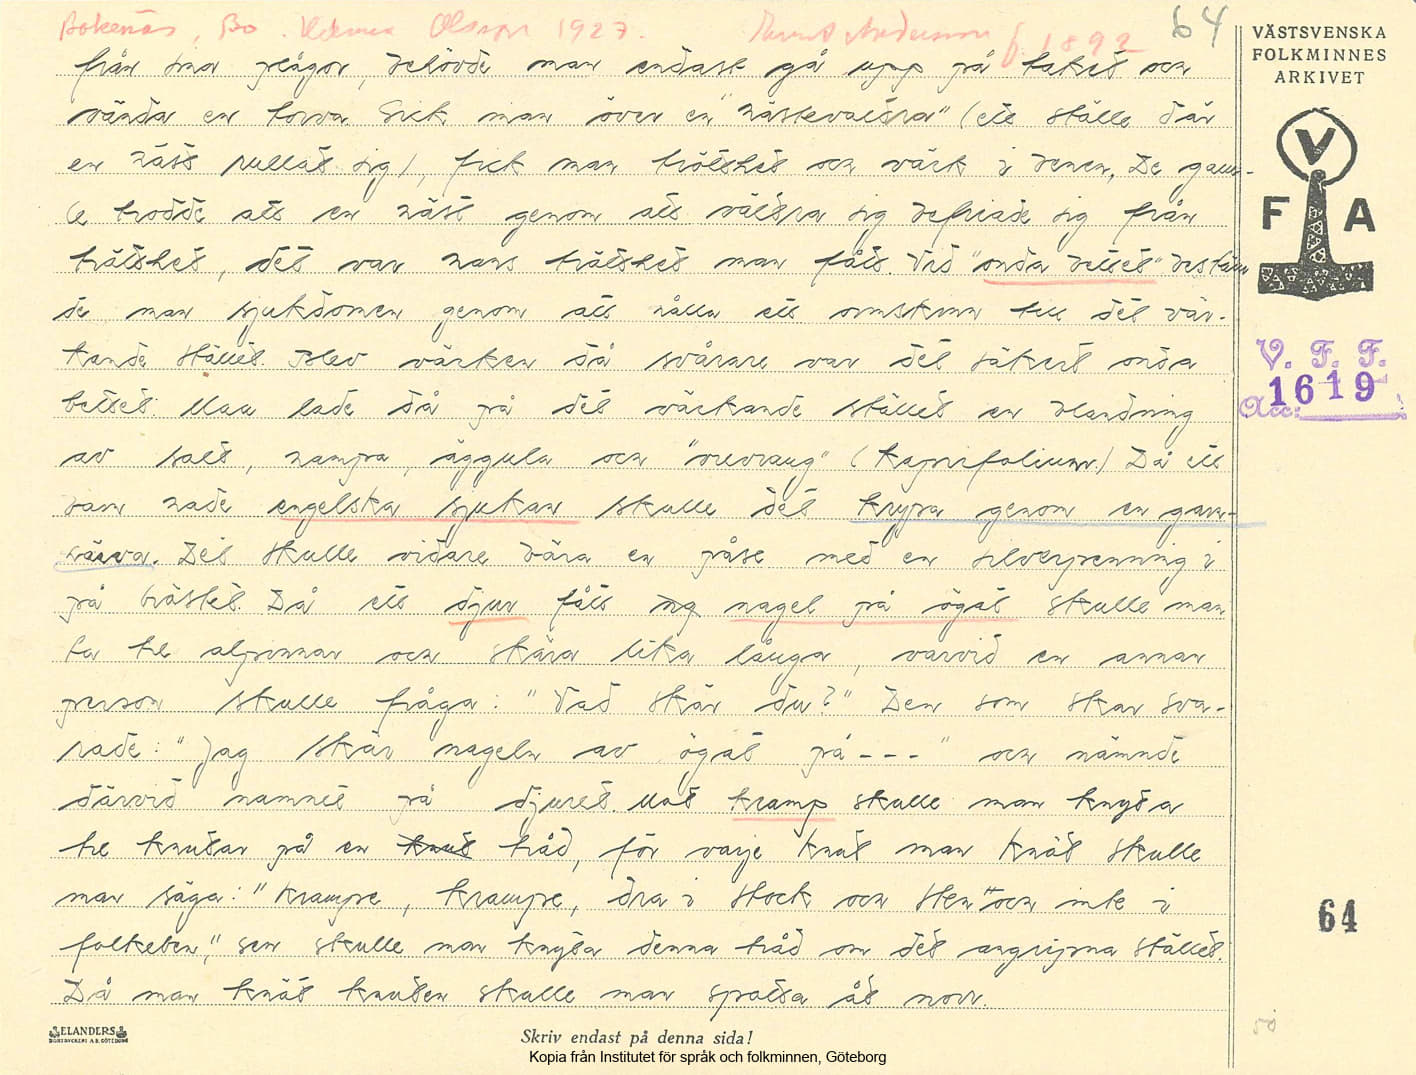 Bokenäs, Bo. Helmer Olsson 1927. Andersson f. 1892 64
från sina plågor, behövde man endast gå upp på taket och
vända en torva. Gick man över en "hästevältra" (ett ställe där
en häst rullat sig), fick man trötthet och värk i benen. De gam-
le trodde att en häst genom att vältra sig befriade sig från
trötthet, det var hans trötthet man fått. Vid "onda betet" bestäm
de man sjukdomen genom att hålla ett ormskinn till det vär-
kande stället. Blev värken då svårare var det säkert onda
betet. Man lade då på det värkande stället en blandning
av salt, hampa, äggula och "revraug" (kaprifolium). Då ett
barn hade engelska sjukan skulle det krypa genom en garn-
härva. Det skulle vidare bära en påse med en silverpenning i
på bröstet. Då ett djur fått nagel på ögat skulle man
ta tre alpinnar och skära lika långa, varvid en annan
person skulle fråga: "Vad skär du?" Den som skar sva-
rade: "Jag skär nageln av ögat på---" och nämnde
därvid namnet på djuret. Mot kramp skulle man knyta
tre knutar på en tråd, för varje knut man knöt skulle
man säga: "krampe, krampe, dra i stock och sten och inte i
folkeben", sen skulle man knyta denna tråd om det angripna stället.
Då man knöt knuten skulle man spotta åt norr.
VÄSTSVENSKA
FOLKMINNES
ARKIVET
V
F A
V. F. F.
1619
Acc:
64
ELANDERS
BOKTRYCKERI A.B. GÖTEBORG
Skriv endast på denna sida!
Kopia från Institutet för språk och folkminnen, Göteborg